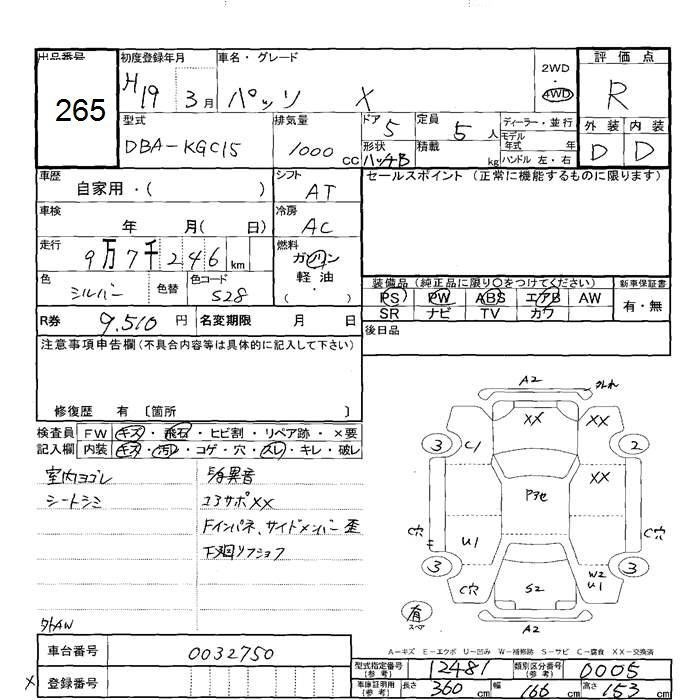 出品番号
265
初度登録年月
H19 3月
車名・グレード
パッソ X
2WD・
4WD
評価点
R
外装 内装
D D
型式
DBA-KGC15
排気量
1000 cc
ドア 5
定員 5 人
形状 ハッチB
積載 kg
ディーラー・並行
モデル年式 年
ハンドル 左・右
車歴
自家用・( )
シフト
AT
車検
年 月( 日)
冷房
AC
走行
9万7千246 km
燃料
ガソリン
軽油
( )
色
シルバー
色替
色コード
S28
R券 9,510 円
名変期限 月 日
セールスポイント (正常に機能するものに限ります)
装備品 (純正品に限り〇をつけてください)
新車保証書
PS PW ABS エアB AW
SR ナビ TV カワ
有・無
後日品
注意事項申告欄(不具合内容等は具体的に記入して下さい)
修復歴 有 〔箇所 〕
検査員
記入欄
FW キズ・飛石・ヒビ割・リペア跡・×要
内装 キズ・汚レ・コゲ・穴・スレ・キレ・破レ
室内ヨゴレ
シートシミ
異音
コアサポXX
Fインパネ、サイドメンバー歪
下廻リアショフ
A2
外れ
XX XX
3 C1 2
XX
Pフセ
C穴 C穴
U1
3 3
W2
U1
C穴 S2
有
スペア
A2
外AW
A-キズ E-エクボ U-凹み W-補修跡 S-サビ C-腐食 XX-交換済
車台番号 0032750
× 登録番号
型式指定番号
(参考)
12481
類別区分番号
(参考)
0005
車庫証明用
(参考)
長さ 360 cm 幅 166 cm 高さ 153 cm